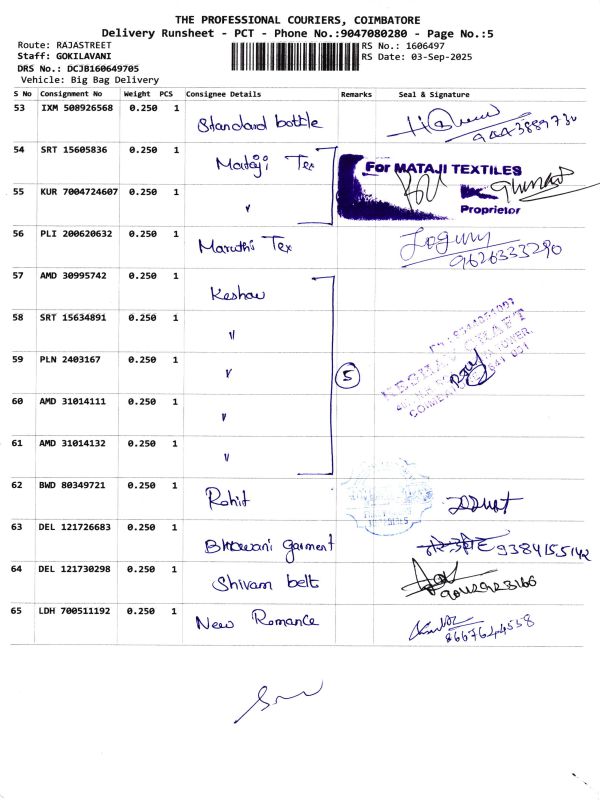 THE PROFESSIONAL COURIERS, COIMBATORE
Delivery Runsheet - PCT - Phone No.:9047080280 - Page No.:5
Route: RAJASTREET RS No.: 1606497
Staff: GOKILAVANI RS Date: 03-Sep-2025
DRS No.: DCJB160649705
Vehicle: Big Bag Delivery
S No Consignment No Weight PCS Consignee Details Remarks Seal & Signature
53 IXM 508926568 0.250 1 Standard bottle
54 SRT 15605836 0.250 1 Mataji Tex
For MATAJI TEXTILES
55 KUR 7004724607 0.250 1 "
Proprietor
56 PLI 200620632 0.250 1 Maruthi Tex
9626333290
57 AMD 30995742 0.250 1 Keshav
58 SRT 15634891 0.250 1 "
KESHAV CRAFT
59 PLN 2403167 0.250 1 " 5
60 AMD 31014111 0.250 1 "
61 AMD 31014132 0.250 1 "
62 BWD 80349721 0.250 1 Rohit
63 DEL 121726683 0.250 1 Bhawani garment 9384155142
64 DEL 121730298 0.250 1 Shivam belt
65 LDH 700511192 0.250 1 New Romance
8667624558